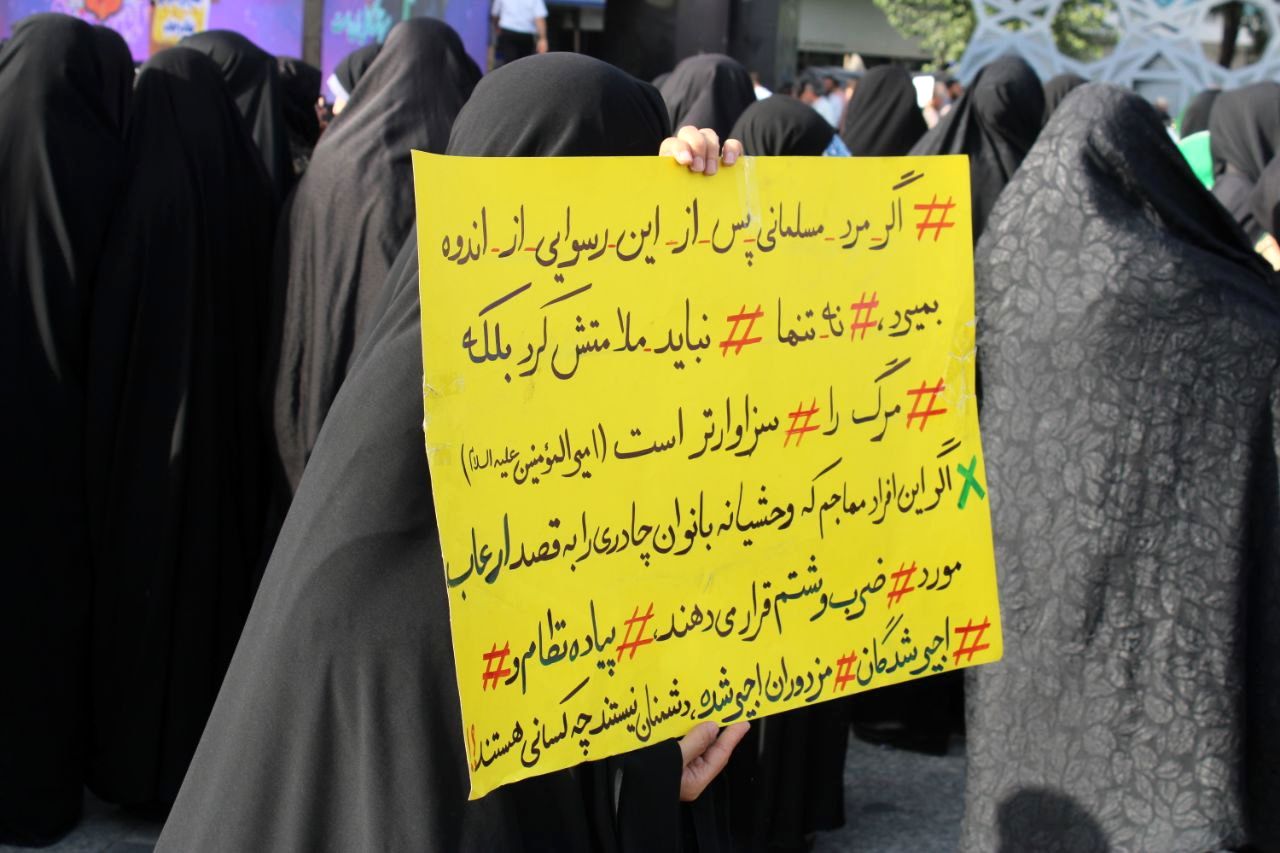 # اگر_مرد_مسلمانی_پس_از_این_رسوایی_از_اندوه
بمیرد، # نه_تنها # نباید_ملامتش کرد بلکه
# مرگ را # سزاوارتر است (امیرالمؤمنین علیه السلام)
X اگر این افراد مهاجم که وحشیانه بانوان چادری را به قصد ارعاب
مورد # ضرب و شتم قرار می دهند، # پیاده نظام و #
# اجیر شدگان # مزدوران اجیر شده، دشمنان نیستند چه کسانی هستند!؟